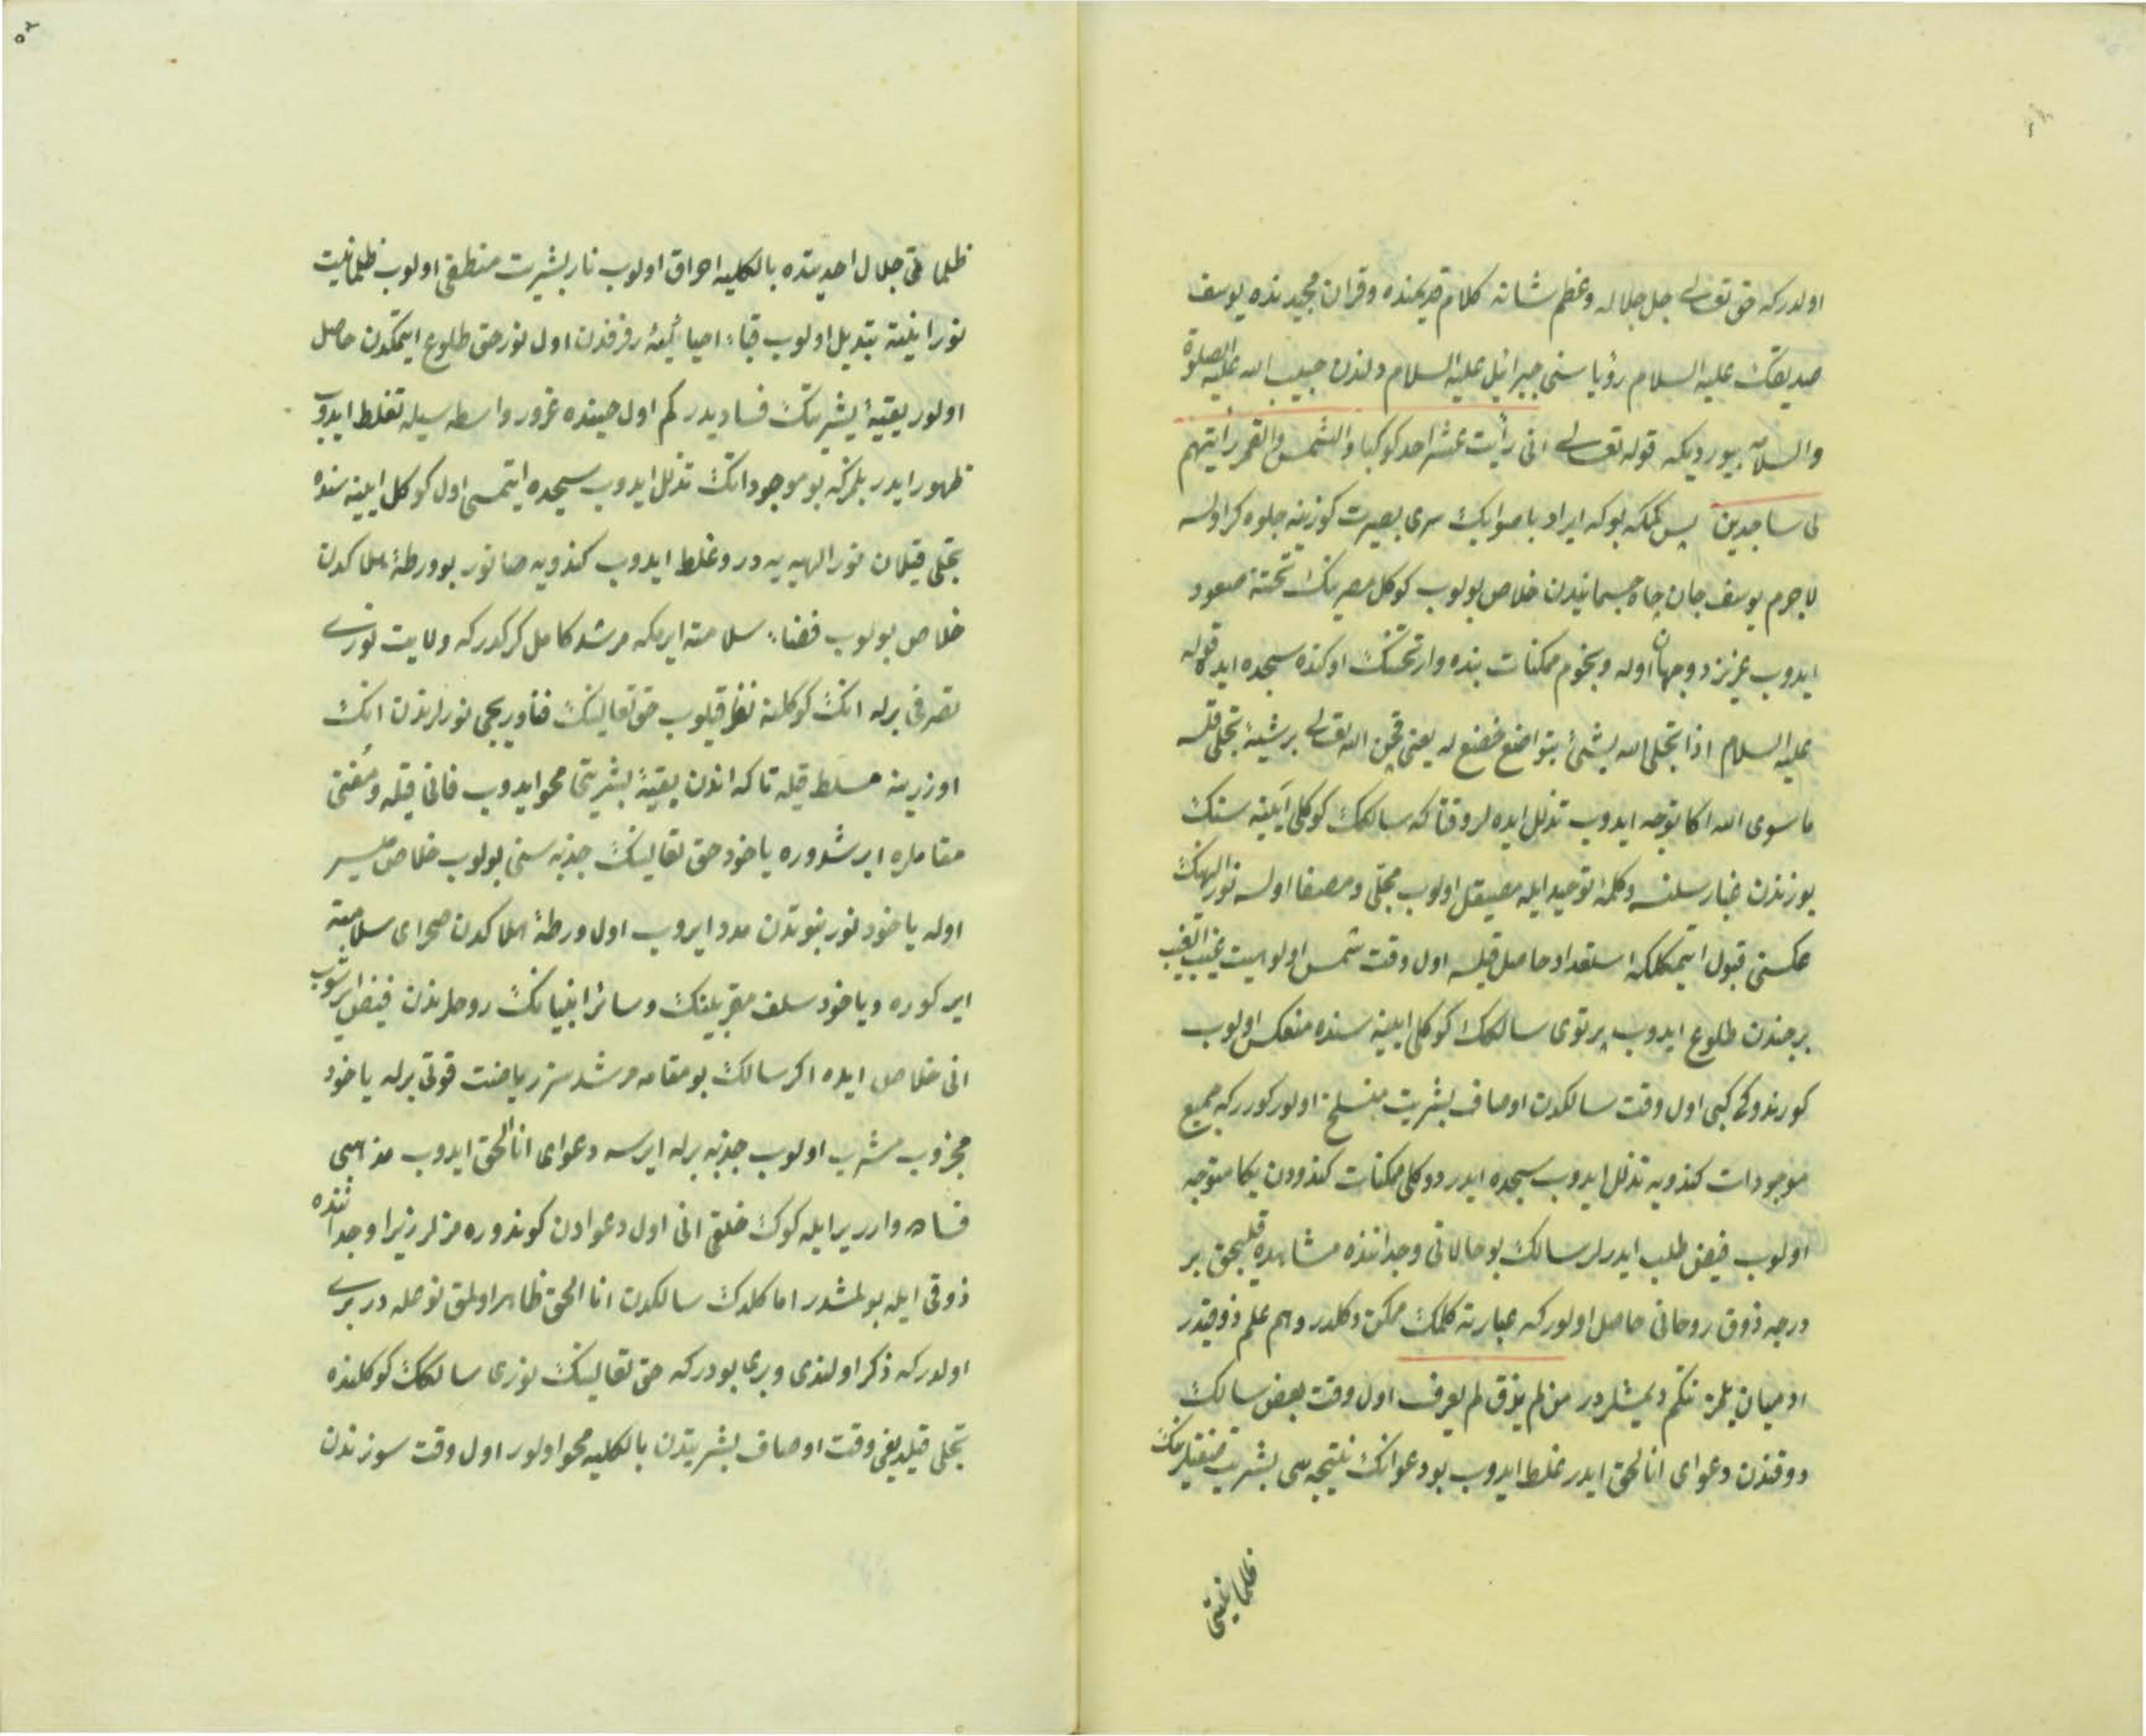 اولدركه حق تعالى جل جلاله وعظم شانه كلام قديمنده وقران مجيدنده يوسف
صديقك عليه السلام رؤياسنى جبرائيل عليه السلام دلندن حبيب الله عليه الصلوة
والسلامه بيورديكه قوله تعالى انى رأيت عشر احد كوكبا والشمس والقمر رأيتهم
لى ساجدين پس بوكه ايراد باصوابك سرى بصيرت كوزينه جلوه كر اولسه
لاجرم يوسف جان چاه جسمانيدن خلاص بولوب كوكل مصرينك تختنه صعود
ايدوب عزيز دوجهان اوله ونجوم ممكنات بنده وار تختنك اوكنده سجده ايده قوله
عليه السلام اذا تجلى الله بشئ يتواضع خضع له يعنى قچن الله تعالى برشيئه تجلى قلسه
ماسوى الله اكا توجه ايدوب تذلل ايده لر وقتا كه سالكك كوكلى آيينه سنك
يوزندن غبار سلنسه وكلمۀ توحيد ايله مصيقل اولوب مجلى ومصفا اولسه نور الهينك
عكسنى قبول ايتمكلكه استعداد حاصل قيلسه اول وقت شمس اولوهيت غيب الغيب
برجندن طلوع ايدوب پرتوى سالكك كوكلى ايينه سنده منعكس اولوب
كورندوكى كبى اول وقت سالكدن اوصاف بشريت منسلخ اولور كوررکه جميع
موجودات كندويه تذلل ايدوب سجده ايدر دوكلى ممكنات كندودن يكا متوجه
اولوب فيض طلب ايدرلر سالك بو حالاتى وجداننده مشاهده قليجق بر
درجه ذوق روحانى حاصل اولوركه عبارته كلمك ممكن دكلدر وهم علم ذوقيدر
اوميان بلمز نتكم ديمشلردر من لم يذق لم يعرف اول وقت بعض سالك
ذوقندن دعواى انا الحق ايدر غلط ايدوب بو دعوانك نتيجه سى بشريت
ظلمانيتى
٥٢
ظلمانيتى جلال احديتده بالكليه احراق اولوب نار بشريت منطفى اولوب ظلمانيت
نورانيته تبديل اولوب اول نور حق طلوع ايتمكدن حاصل
اولور بقيۀ بشريتك فساديدر كم اول حينده غرور واسطه سيله تغلط ايدوب
ظهور ايدر بلمزكه بو موجوداتك تذلل ايدوب سجده ايتمسى اول كوكل ايينه سنده
تجلى قيلان نور الهيه يه در وغلط ايدوب كندويه صانور بو ورطۀ هلاكدن
خلاص بولوب فضاء سلامته ايرمكه مرشد كامل كركدركه ولايت نورى
تصرفى برله انك كوكلنه نظر قيلوب حق تعالينك نورلرندن انك
اوزرينه مسلط قيله تا كه اندن بقيۀ بشريتى محو ايدوب فانى قيله ومفنى
مقاملره ايرشدوره ياخود حق تعالينك جذبه سنى بولوب خلاص ميسر
اوله ياخود نور نبوتدن مدد ايروب اول ورطۀ هلاكدن صحراى سلامته
ايركوره وياخود سلف مقربلرنك وسائر انبيانك روحلرندن فيض ايرشوب
انى خلاص ايده اكر سالك بو مقامه مرشدسز رياضت قوتى برله ياخود
مجذوب مشرب اولوب جذبه برله ايرسه دعواى انا الحق ايدوب مذهبى
فساده وارر يرايله كوك خلقى انى اول دعوادن كوندوره مزلر زيرا وجداننده
ذوقى ايله بولمشدر اما كلدك سالكدن انا الحق ظاهر اولمق نوحله در برى
اولدركه ذكر اولندى وبرى بودركه حق تعالينك نورى سالكك كوكلنده
تجلى قيلديغى وقت اوصاف بشريتدن بالكليه محو اولور اول وقت سوزندن